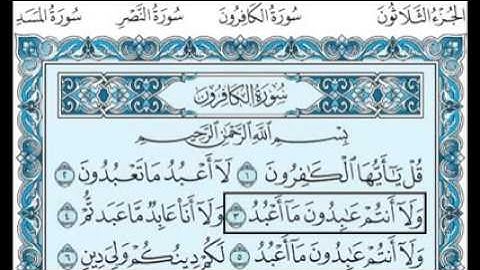 الجُزْءُ الثَّلَاثُونَ سُورَةُ الكَافِرُونَ سُورَةُ النَّصْرِ سُورَةُ المَسَدِ
سُورَةُ الكَافِرُونَ
بِسْمِ اللَّهِ الرَّحْمَٰنِ الرَّحِيمِ
قُلْ يَٰٓأَيُّهَا الْكَٰفِرُونَ ١ لَآ أَعْبُدُ مَا تَعْبُدُونَ ٢
وَلَآ أَنتُمْ عَٰبِدُونَ مَآ أَعْبُدُ ٣ وَلَآ أَنَا۠ عَابِدٌ مَّا عَبَدتُّمْ ٤
وَلَآ أَنتُمْ عَٰبِدُونَ مَآ أَعْبُدُ ٥ لَكُمْ دِينُكُمْ وَلِيَ دِينِ ٦